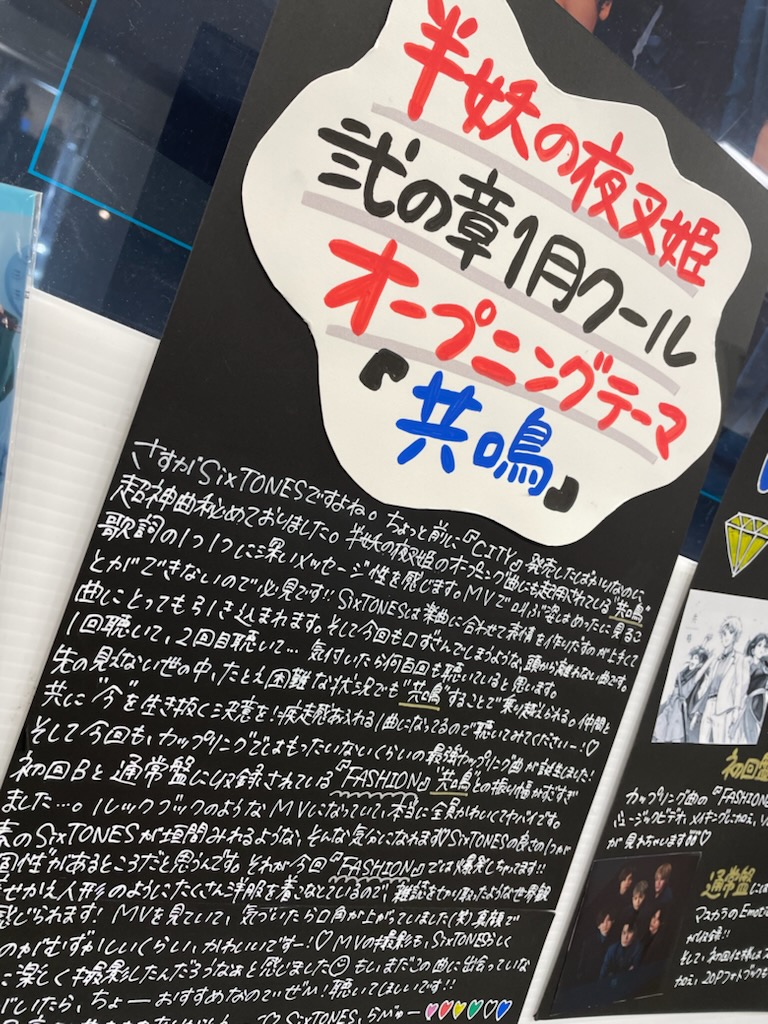 半妖の夜叉姫
弐の章1月クール
オープニングテーマ
『共鳴』
さすがSixTONESですよね。ちょっと前に『CITY』発売したばかりなのに、
超神曲秘めておりました。半妖の夜叉姫のオープニング曲にも起用されている"共鳴"
歌詞の1つ1つに深いメッセージ性を感じます。MVで叫ぶ姿はめったに見るこ
とができないので必見です!! SixTONESは楽曲に合わせて表情を作りだすのが上手くて
曲にとっても引き込まれます。そして今回も口ずさんでしまうような、頭から離れない曲です。
1回聴いて、2回目聴いて… 気付いたら何百回も聴いていると思います。
先の見えない世の中、たとえ困難な状況でも"共鳴"することで乗り越えられる。仲間と
共に"今"を生き抜く決意を!疾走感あふれる1曲になってるので聴いてみてくださいー!♡
そして今回も、カップリングではもったいないくらいの最強カップリング曲が誕生しました!
初回Bと通常盤に収録されている『FASHION』"共鳴"との振り幅がすぎ
ました…。ルックブックのようなMVになっていて、本当に全員かわいくてヤバイです。
素のSixTONESが垣間みれるような、そんな気分になれます♡SixTONESの良さの1つが
性があるところだと思うんです。それが今回『FASHION』では爆発しちゃってます!!
せかえ人形のようにたくさん洋服を着こなしているので、雑誌を切り取ったような世界観
感じられます! MVを見ていて、気づいたら口角が上がっていました(笑)真顔で
のがむずかしいくらい、かわいいですー!♡ MVの撮影も、SixTONESらしく
に楽しく撮影したんだろうなぁと感じました☺ もし、まだこの曲に出会っていな
がいたら、ちょーおすすめなのでぜひ!聴いてほしいです!!
♡SixTONES、らびゅー
初回盤
カップリング曲の『FASHION
ミュージックビデオ、メイキングに加え、
が見れちゃいます♡
通常盤には
マスカラのEmoti
が収録!!
そして、初回仕様は
加え、20Pフォトブックも